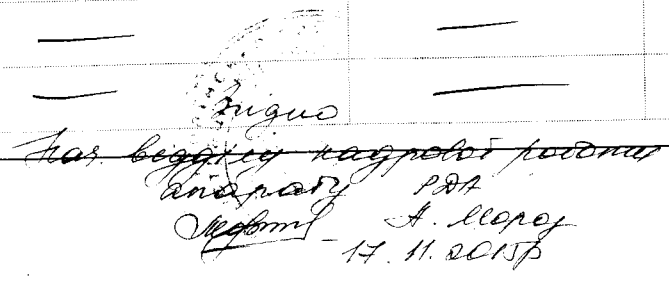 Згідно
Нач. відділу кадрової роботи
апарату РДА
А. Мороз
17.11.2015р